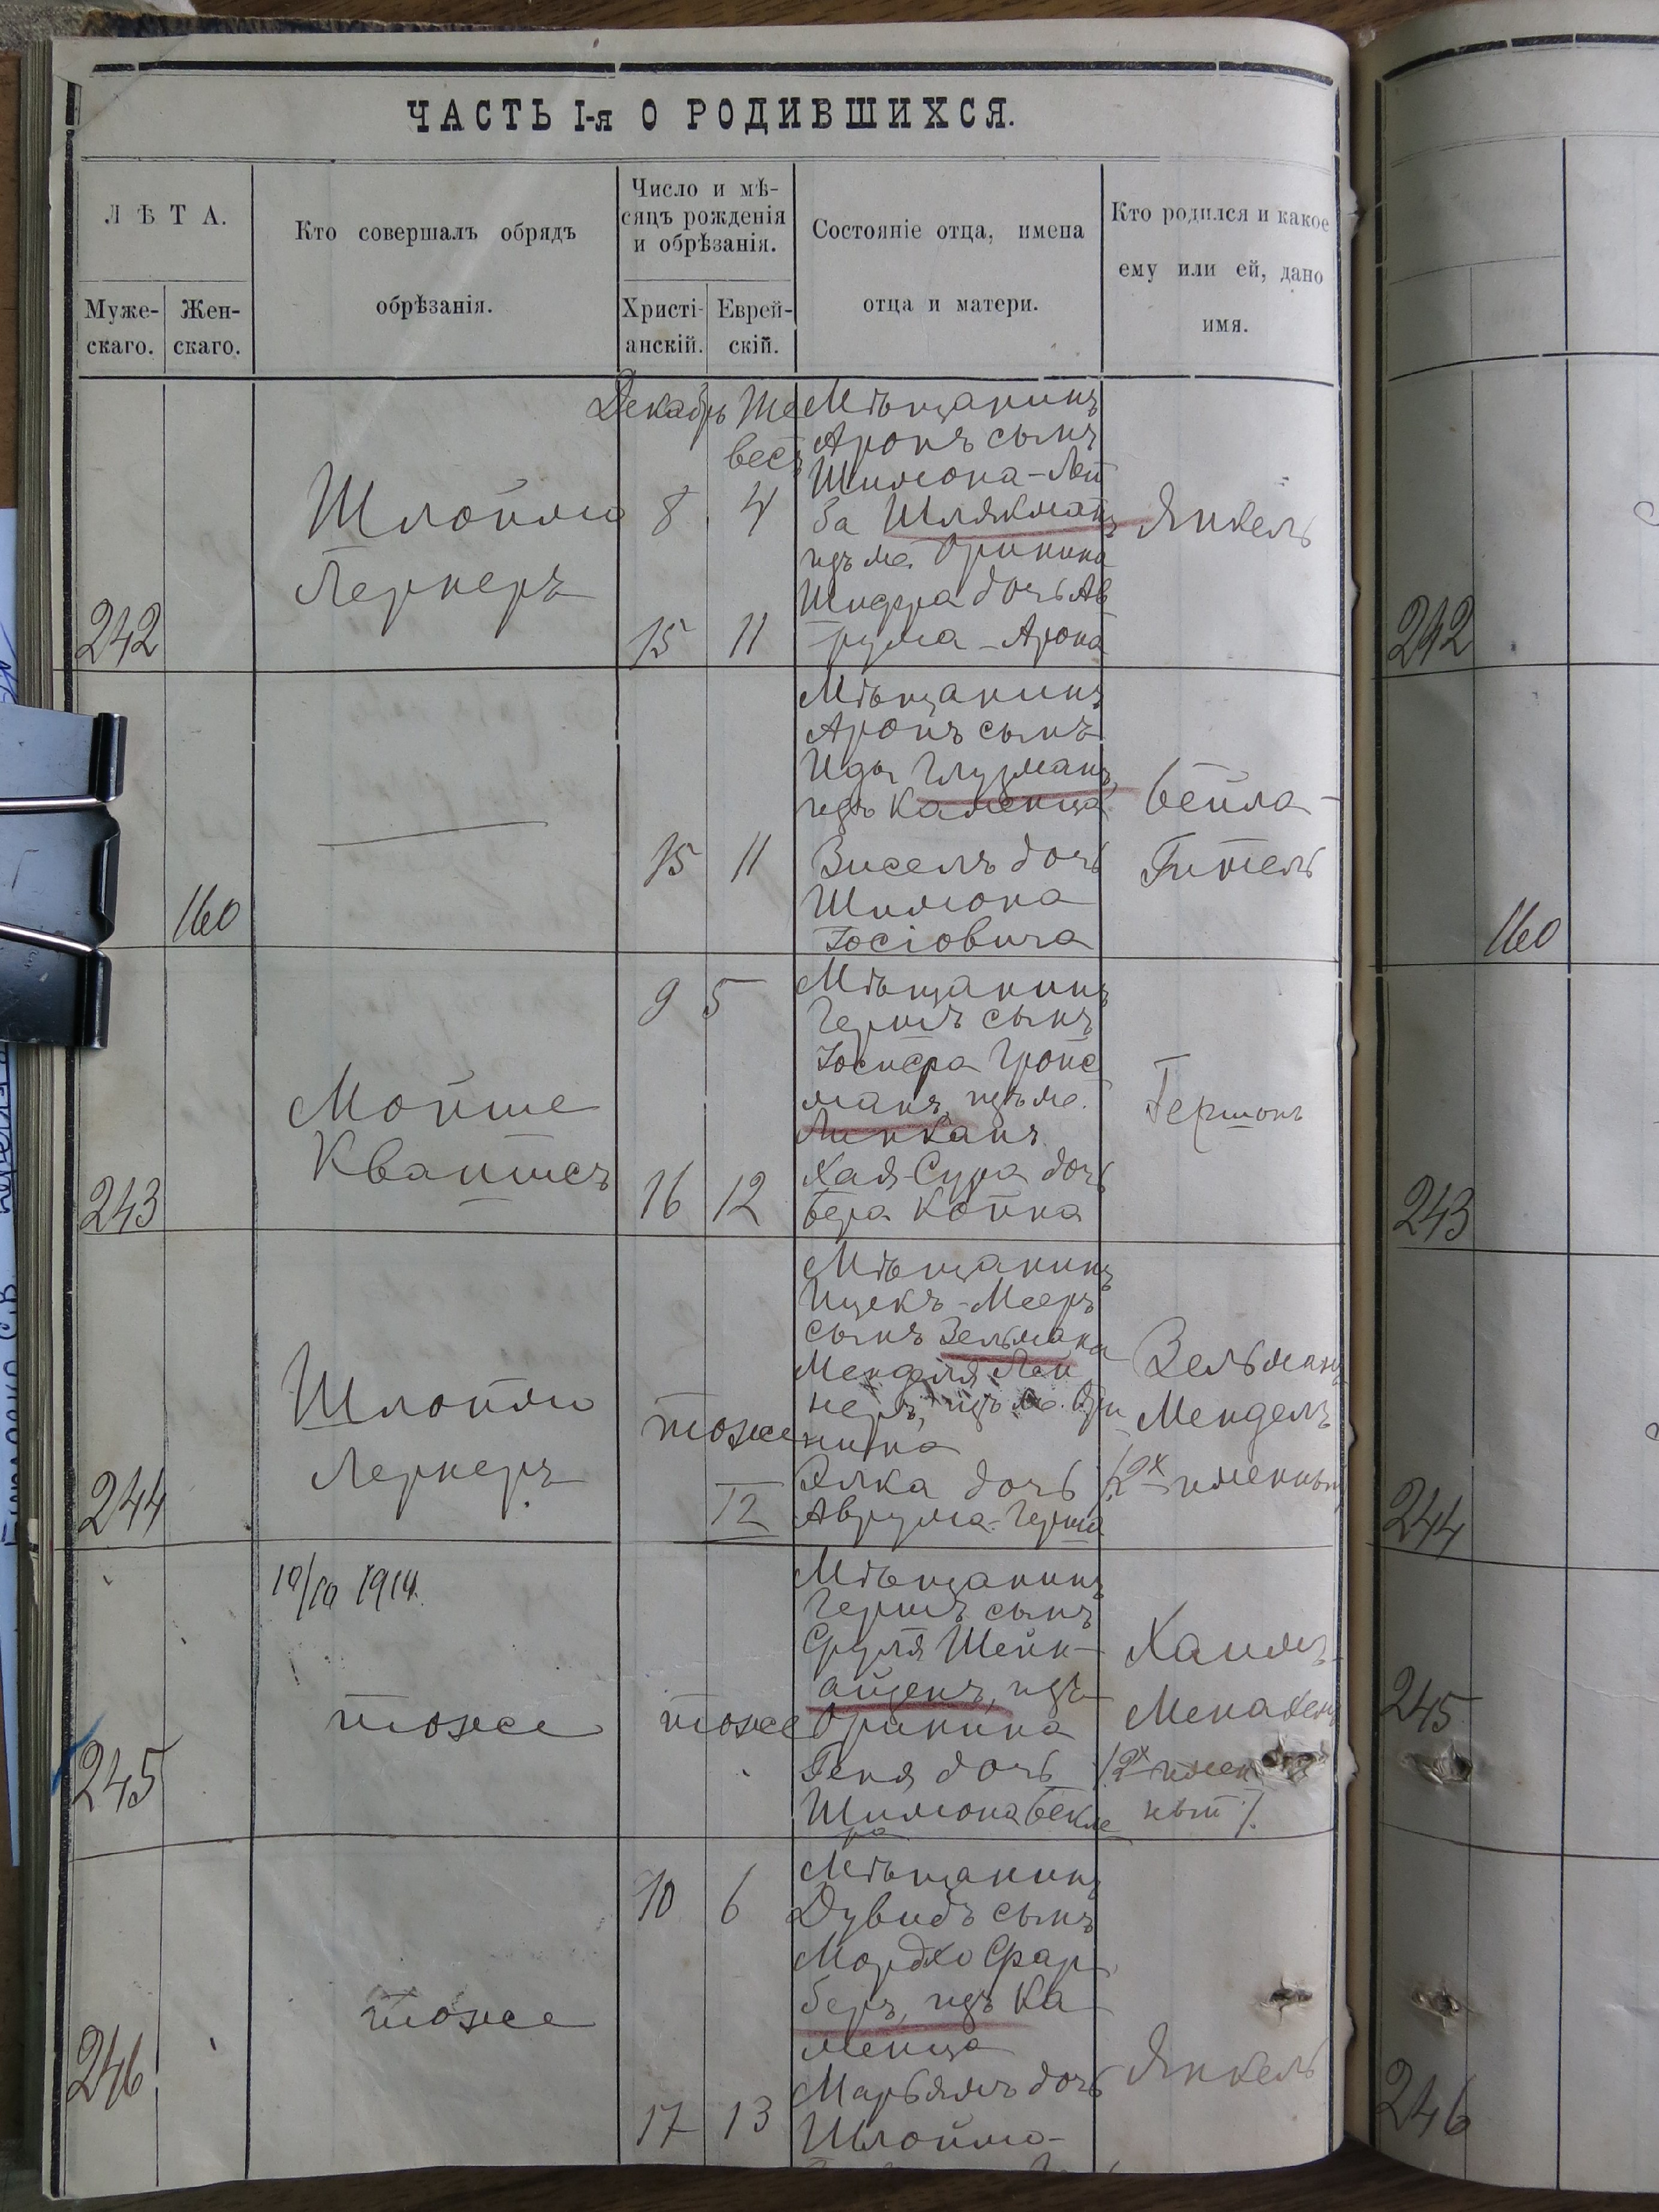 ЧАСТЬ I-я О РОДИВШИХСЯ.
ЛѢТА.
Муже-
скаго.
Жен-
скаго.
Кто совершалъ обрядъ
обрѣзанія.
Число и мѣ-
сяцъ рожденія
и обрѣзанія.
Христі-
анскій.
Еврей-
скій.
Состояніе отца, имена
отца и матери.
Кто родился и какое
ему или ей, дано
имя.
242
Шлойма
Лернеръ
Декабрь
8
15
Те
весъ
4
11
Мѣщанинъ
Аронъ сынъ
Шимона-Лей
ба Шляхманъ
изъ м. Оринина
Шифра дочь Ав
рума-Арона
Янкель
242
160
15
11
Мѣщанинъ
Аронъ сынъ
Иды Глузманъ,
изъ Каменца
Висель дочь
Шимона
Іосіовича
Бейла-
Гитель
160
243
Мойше
Квайтсъ
9
5
16
12
Мѣщанинъ
Гершъ сынъ
Іосифа Гройс
манъ, изъ м.
Липканъ
Хая-Сура дочь
Бера Койна
Гершонъ
243
244
Шлойма
Лернеръ
тоже
12
Мѣщанинъ
Ицекъ-Мееръ
сынъ Зельмана
Менделя
неръ, изъ м. Ори
нина
Элка дочь
Аврума-Герша
Зельманъ
Мендель
/2х именный/
244
245
10/IV 1914.
тоже
тоже
Мѣщанинъ
Гершъ сынъ
Сруля Шейн-
айзенъ, изъ
Оринина
Геня дочь
Шимона Бекле
ра
Хаимъ-
Менахемъ
/2х имен
ный/.
245
246
тоже
10
6
17
13
Мѣщанинъ
Дувидъ сынъ
Мордко Фар
беръ, изъ Ка
менца
Марьямъ дочь
Шлойма-
Янкель
246